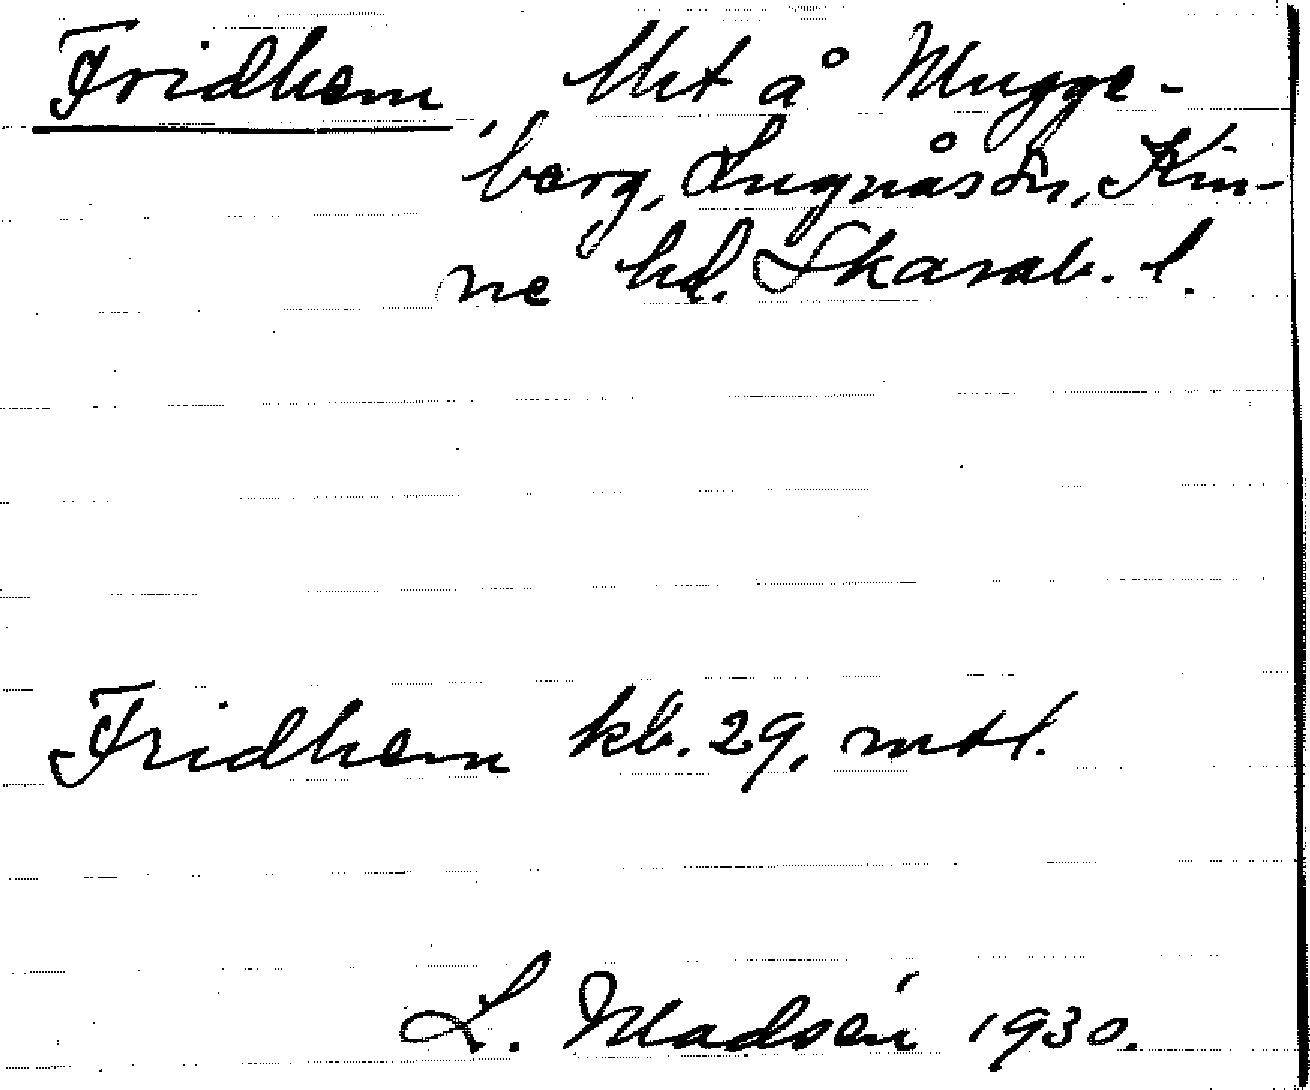 Fridhem, Utt å Mugge-
berg, Lugnås sn, Kin-
ne hd. Skarab. l.
Fridhem kb. 29, mtl.
L. Madsén 1930.